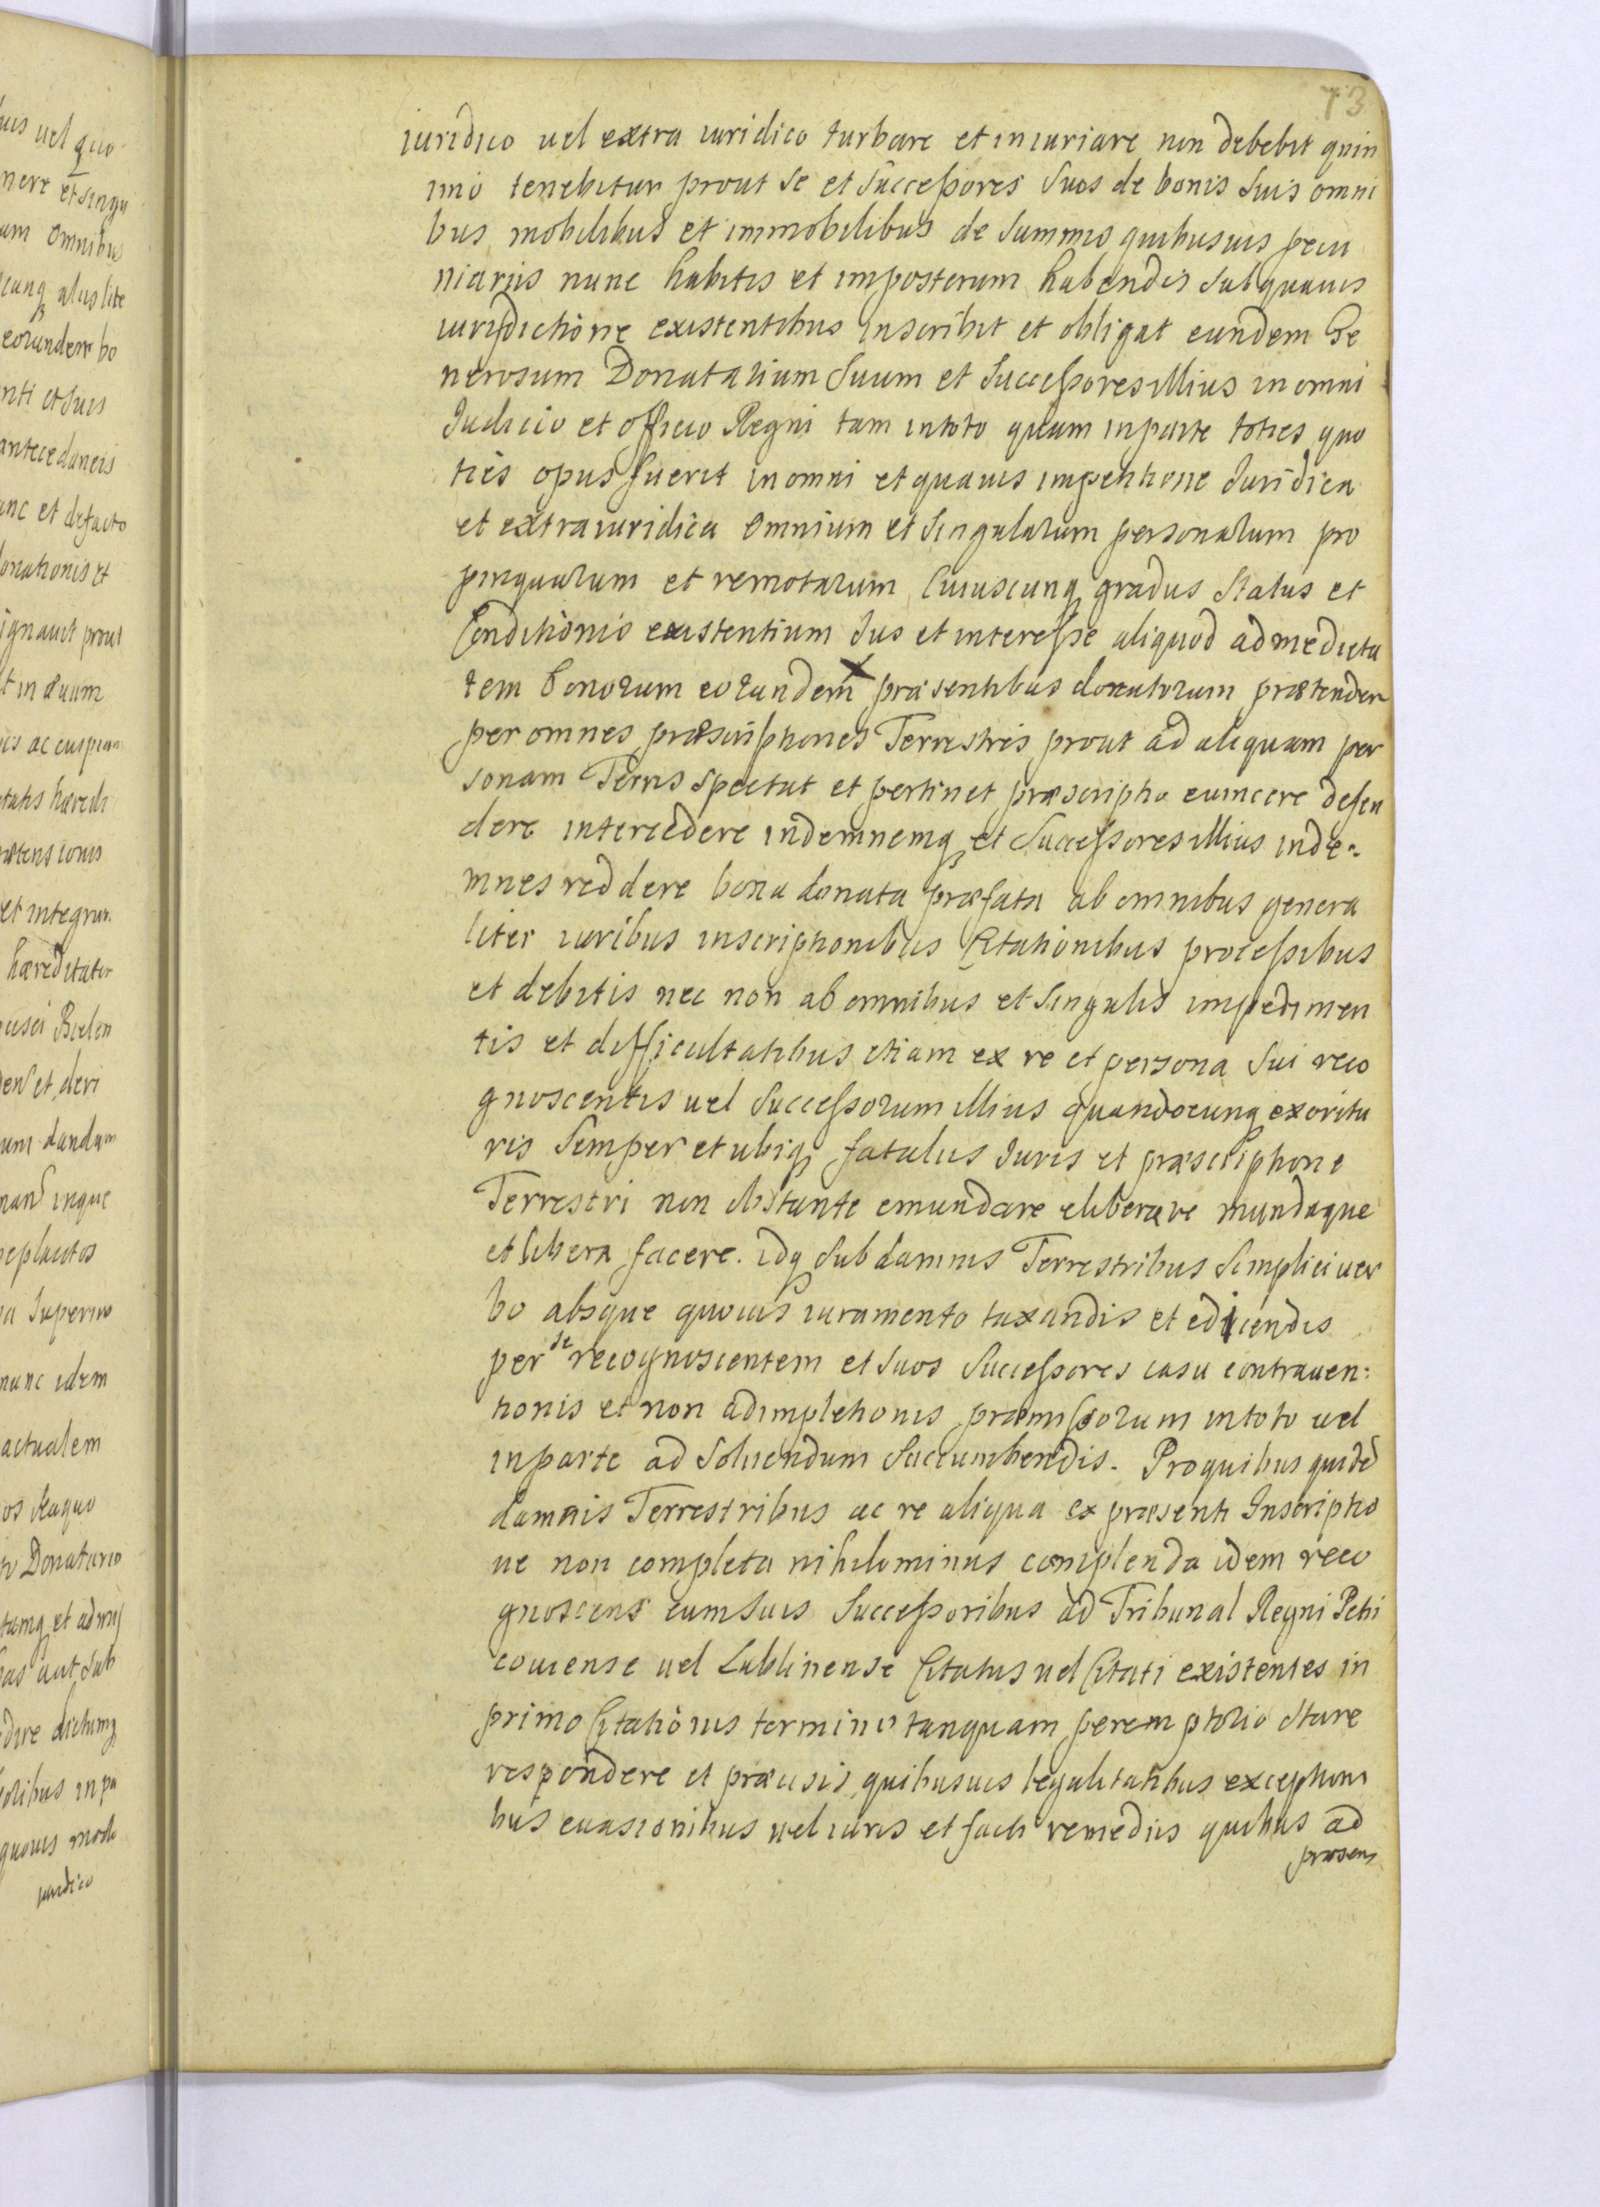 73
iuridico uel extra iuridico turbare et iniuriare non debebit quin
imo tenebitur prout se et Successores Suos de bonis Suis omni
bus mobilibus et immobilibus de Summis quibusuis pecu
niariis nunc habitis et imposterum habendis Sub quauis
iurisdictione existentibus inscribit et obligat eundem Ge
nerosum Donatarium Suum et Successores illius in omni
Iudicio et officio Regni tam intoto quam inparte toties quo
ties opus fuerit in omni et quauis impetitione Iuridica
et extraiuridica Omnium et Singularum personarum pro
pinquarum et remotarum Cuiuscunq gradus Status et
Conditionis existentium Ius et interesse aliquod ad medieta
tem bonorum eorundem præsentibus donatorum prætenden
per omnes præscriptiones Terrestres prout ad aliquam per
sonam Terris spectat et pertinet præscriptio euincere defen
dere intercedere indemnemq et Successores illius inde:
mnes reddere bona donata præfata ab omnibus genera
liter iuribus inscriptionibus Citationibus processibus
et debitis nec non ab omnibus et Singulis impedimen
tis et difficultatibus etiam ex re et persona Sui reco
gnoscentis uel Successorum illius quandocunq exoritu
ris Semper et ubiq fatalius Iuris et præscriptione
Terrestri non obstante emundare eliberare mundaque
et libera facere. idq Sub damnis Terrestribus Simplici uer
bo absque quouis iuramento taxandis et edicendis
per se recognoscentem et Suos Successores casu contrauen:
tionis et non adimpletionis præmissorum intoto uel
inparte ad Soluendum Succumbendis. Proquibus quidē
damnis Terrestribus ac re aliqua ex præsenti Inscriptio
ne non completa nihilominus complenda idem reco
gnoscens cum Suis Successoribus ad Tribunal Regni Petri
couiense uel Lublinense Citatus uel Citati existentes in
primo Citationis termino tanquam peremptorio Stare
respondere et præcisis quibusuis legalitatibus exceptioni
bus euasionibus uel iuris et facti remediis quibus ad
præsens